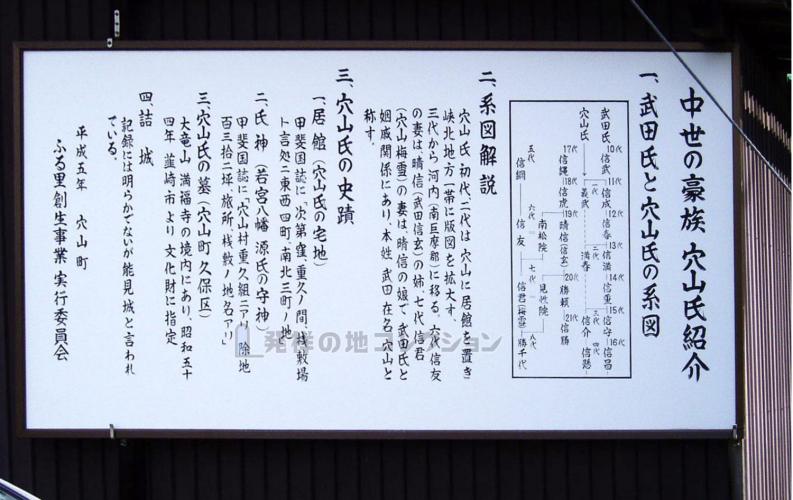 中世の豪族 穴山氏紹介
一、武田氏と穴山氏の系図
武田氏 10代信武 11代信成 12代信春 13代信満 14代信重 15代信守 16代信昌
穴山氏 一代義武 二代満春 三代信介 四代信懸
17代信縄 18代信虎 19代晴信(信玄) 20代勝頼 21代信勝
南松院 見性院
五代信綱 六代信友 七代信君(梅雪) 八代勝千代
二、系図解説
穴山氏、初代、二代は穴山に居館を置き
峡北地方一帯に版図を拡大す、
三代から河内(南巨摩郡)に移る、六代信友
の妻は、晴信(武田信玄)の姉、七代信君
(穴山梅雪)の妻は、晴信の娘で、武田氏と
姻戚関係にあり、本姓、武田在名、穴山と
称す、
三、穴山氏の史蹟、
一、居館(穴山氏の宅地)
甲斐国誌に「次第窪、重久ノ間、桟敷場
ト言処ニ東西四町、南北三町ノ地
二、氏神(若宮八幡 源氏の守神)
甲斐国誌に「穴山村重久組ニアリ 除地
百三拾二坪、旅所、桟敷ノ地名アリ」
三、穴山氏の墓(穴山町久保区)
大竜山 満福寺の境内にあり、昭和五十
四年 韮崎市より文化財に指定
四、詰城
記録には明らかでないが能見城と言われ
ている、
平成五年 穴山町
ふる里創生事業 実行委員会
発祥の地コレクション